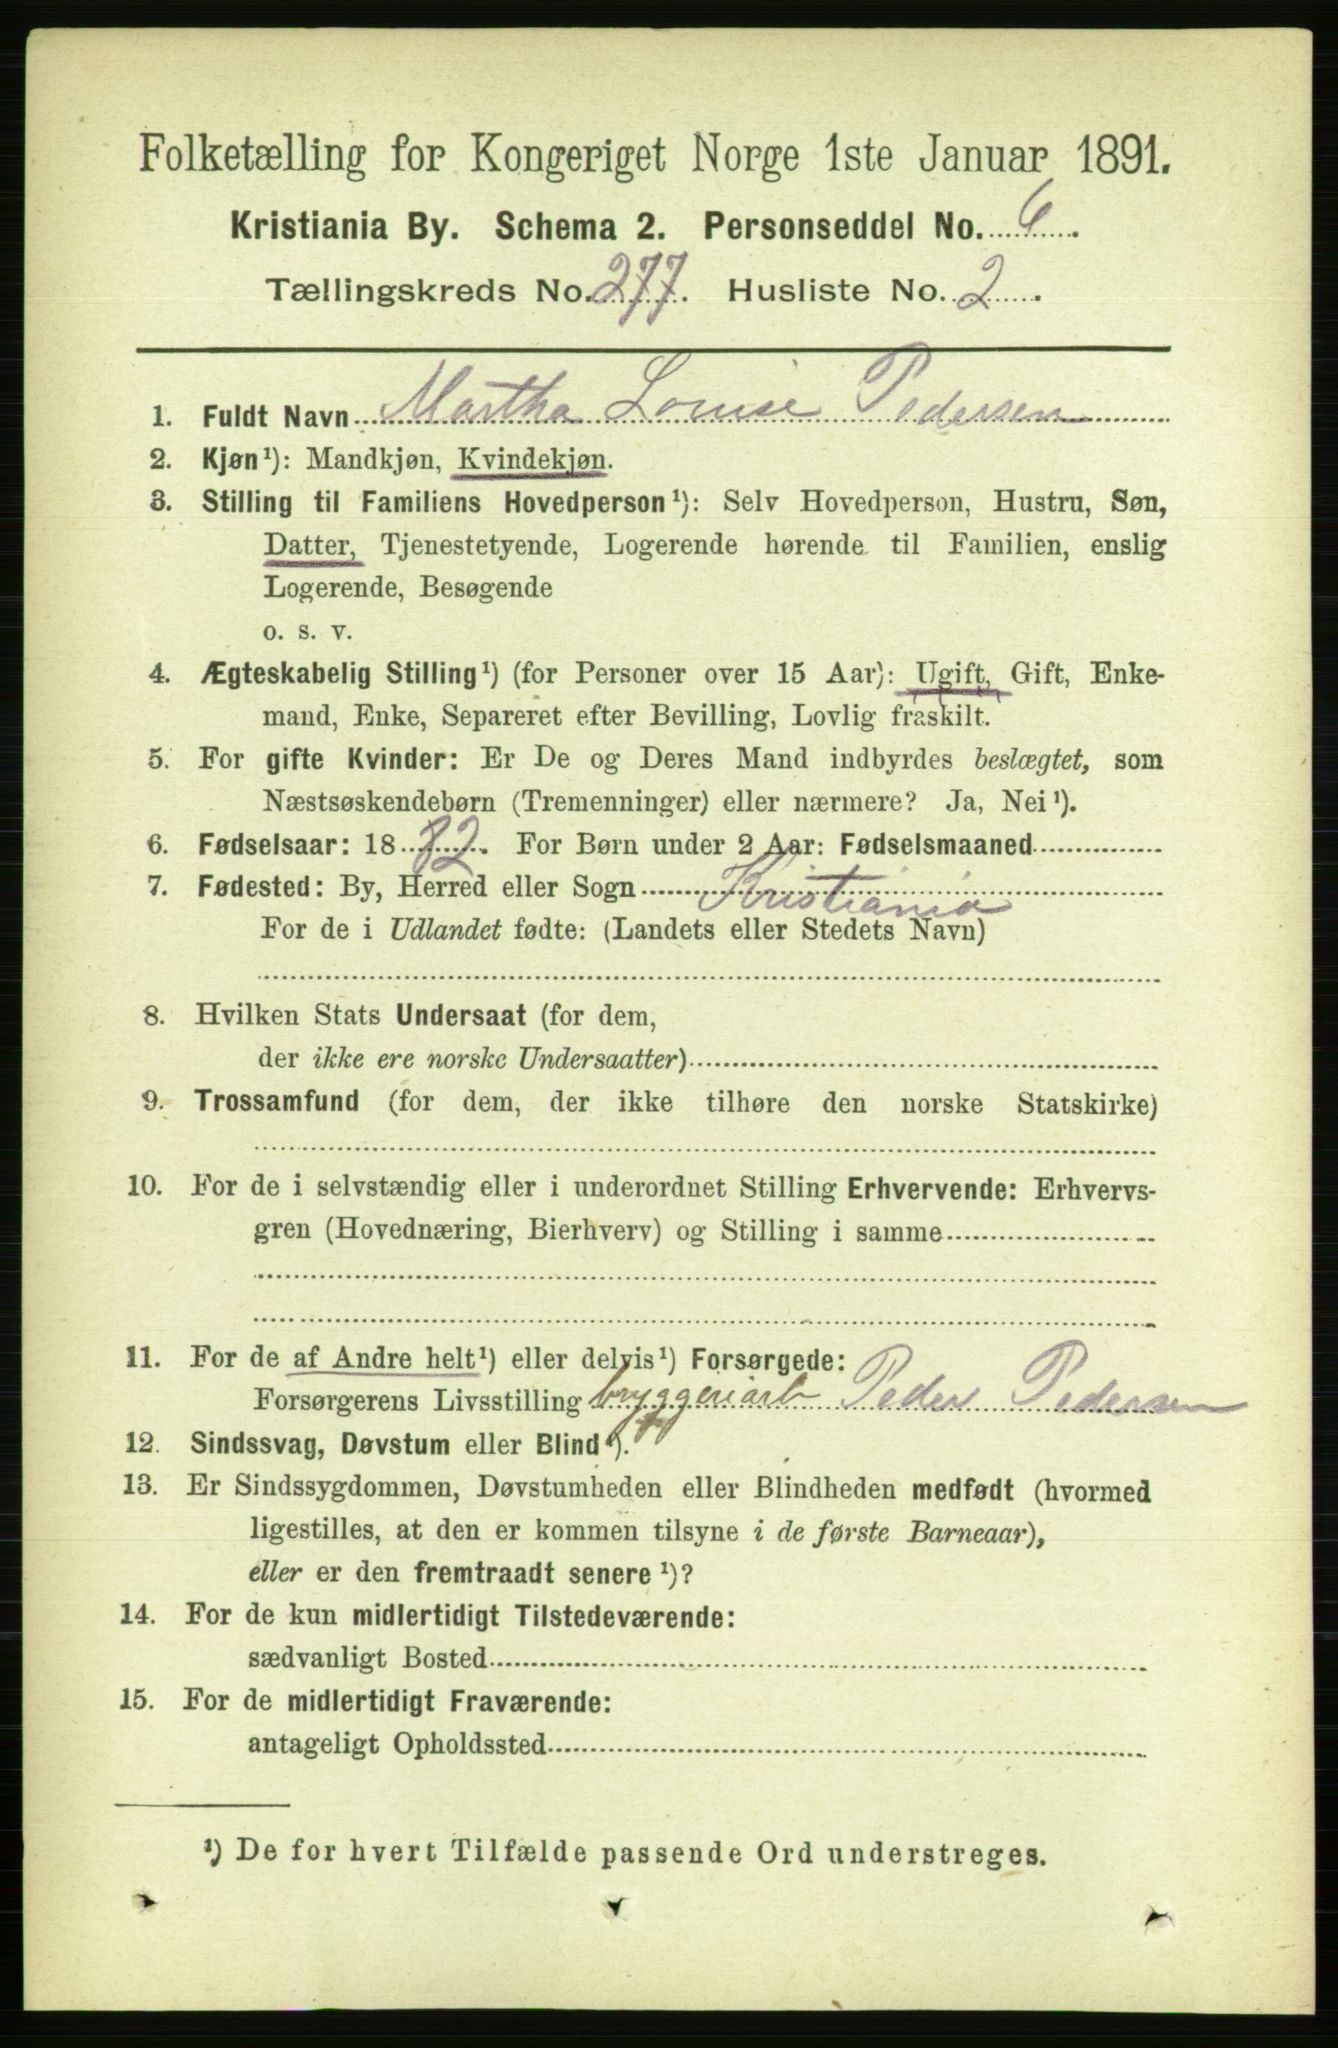 Folketælling for Kongeriget Norge 1ste Januar 1891.
Kristiania By. Schema 2. Personseddel No. 6.
Tællingskreds No. 277. Husliste No. 2.
1. Fuldt Navn Martha Louise Pedersen
2. Kjøn¹): Mandkjøn, Kvindekjøn.
3. Stilling til Familiens Hovedperson¹): Selv Hovedperson, Hustru, Søn,
Datter, Tjenestetyende, Logerende hørende til Familien, enslig
Logerende, Besøgende
o. s. v.
4. Ægteskabelig Stilling¹) (for Personer over 15 Aar): Ugift, Gift, Enke-
mand, Enke, Separeret efter Bevilling, Lovlig fraskilt.
5. For gifte Kvinder: Er De og Deres Mand indbyrdes beslægtet, som
Næstsøskendebørn (Tremenninger) eller nærmere? Ja, Nei¹).
6. Fødselsaar: 1882. For Børn under 2 Aar: Fødselsmaaned
7. Fødested: By, Herred eller Sogn Kristiania
For de i Udlandet fødte: (Landets eller Stedets Navn)
8. Hvilken Stats Undersaat (for dem,
der ikke ere norske Undersaatter)
9. Trossamfund (for dem, der ikke tilhøre den norske Statskirke)
10. For de i selvstændig eller i underordnet Stilling Erhvervende: Erhvervs-
gren (Hovednæring, Bierhverv) og Stilling i samme
11. For de af Andre helt¹) eller delvis¹) Forsørgede:
Forsørgerens Livsstilling bryggeriarb Peder Pedersen
12. Sindssvag, Døvstum eller Blind¹).
13. Er Sindssygdommen, Døvstumheden eller Blindheden medfødt (hvormed
ligestilles, at den er kommen tilsyne i de første Barneaar),
eller er den fremtraadt senere¹)?
14. For de kun midlertidigt Tilstedeværende:
sædvanligt Bosted
15. For de midlertidigt Fraværende:
antageligt Opholdssted
¹) De for hvert Tilfælde passende Ord understreges.